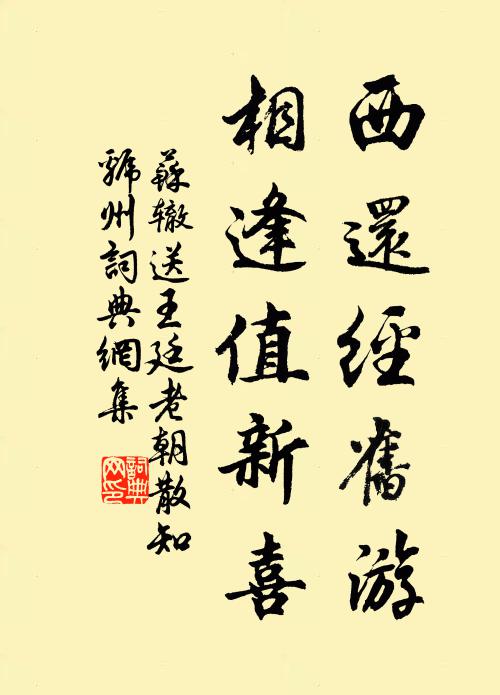 西還經舊游
相逢值新喜
蘇轍送王廷老朝散知
虢州詞典網集
詞典
网印